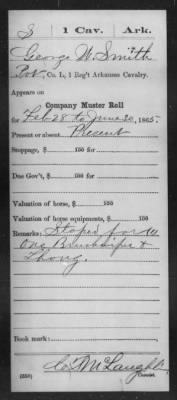 S | 1 Cav. | Ark.
George W. Smith
Pvt, Co. L, 1 Reg't Arkansas Cavalry.
Appears on
Company Muster Roll
for Feb 28 to June 30, 1865.
Present or absent Present
Stoppage, $ 100 for
Due Gov't, $ 100 for
Valuation of horse, $ 100
Valuation of horse equipments, $ 100
Remarks: Stoped for
One Brush wiper &
Thong.
Book mark:
(358) Copyist.